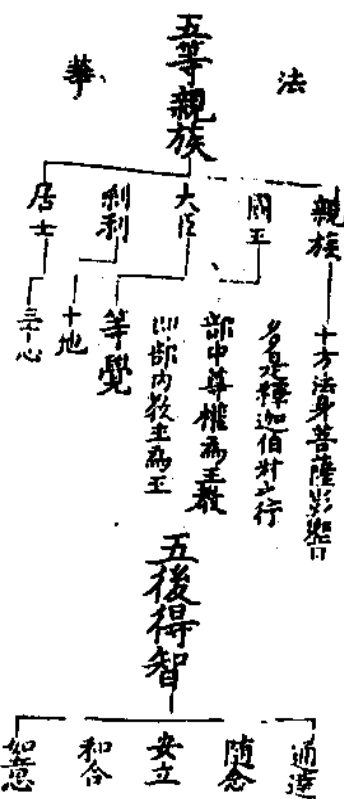 法華
五等親族
親族
國王
大臣
刹利
居士
十方法身菩薩影響
多是釋迦伯叔之行
部中尊權為王教
即部內教主為王
等覺
十地
三十心
五後得智
通達
随念
安立
和合
如意